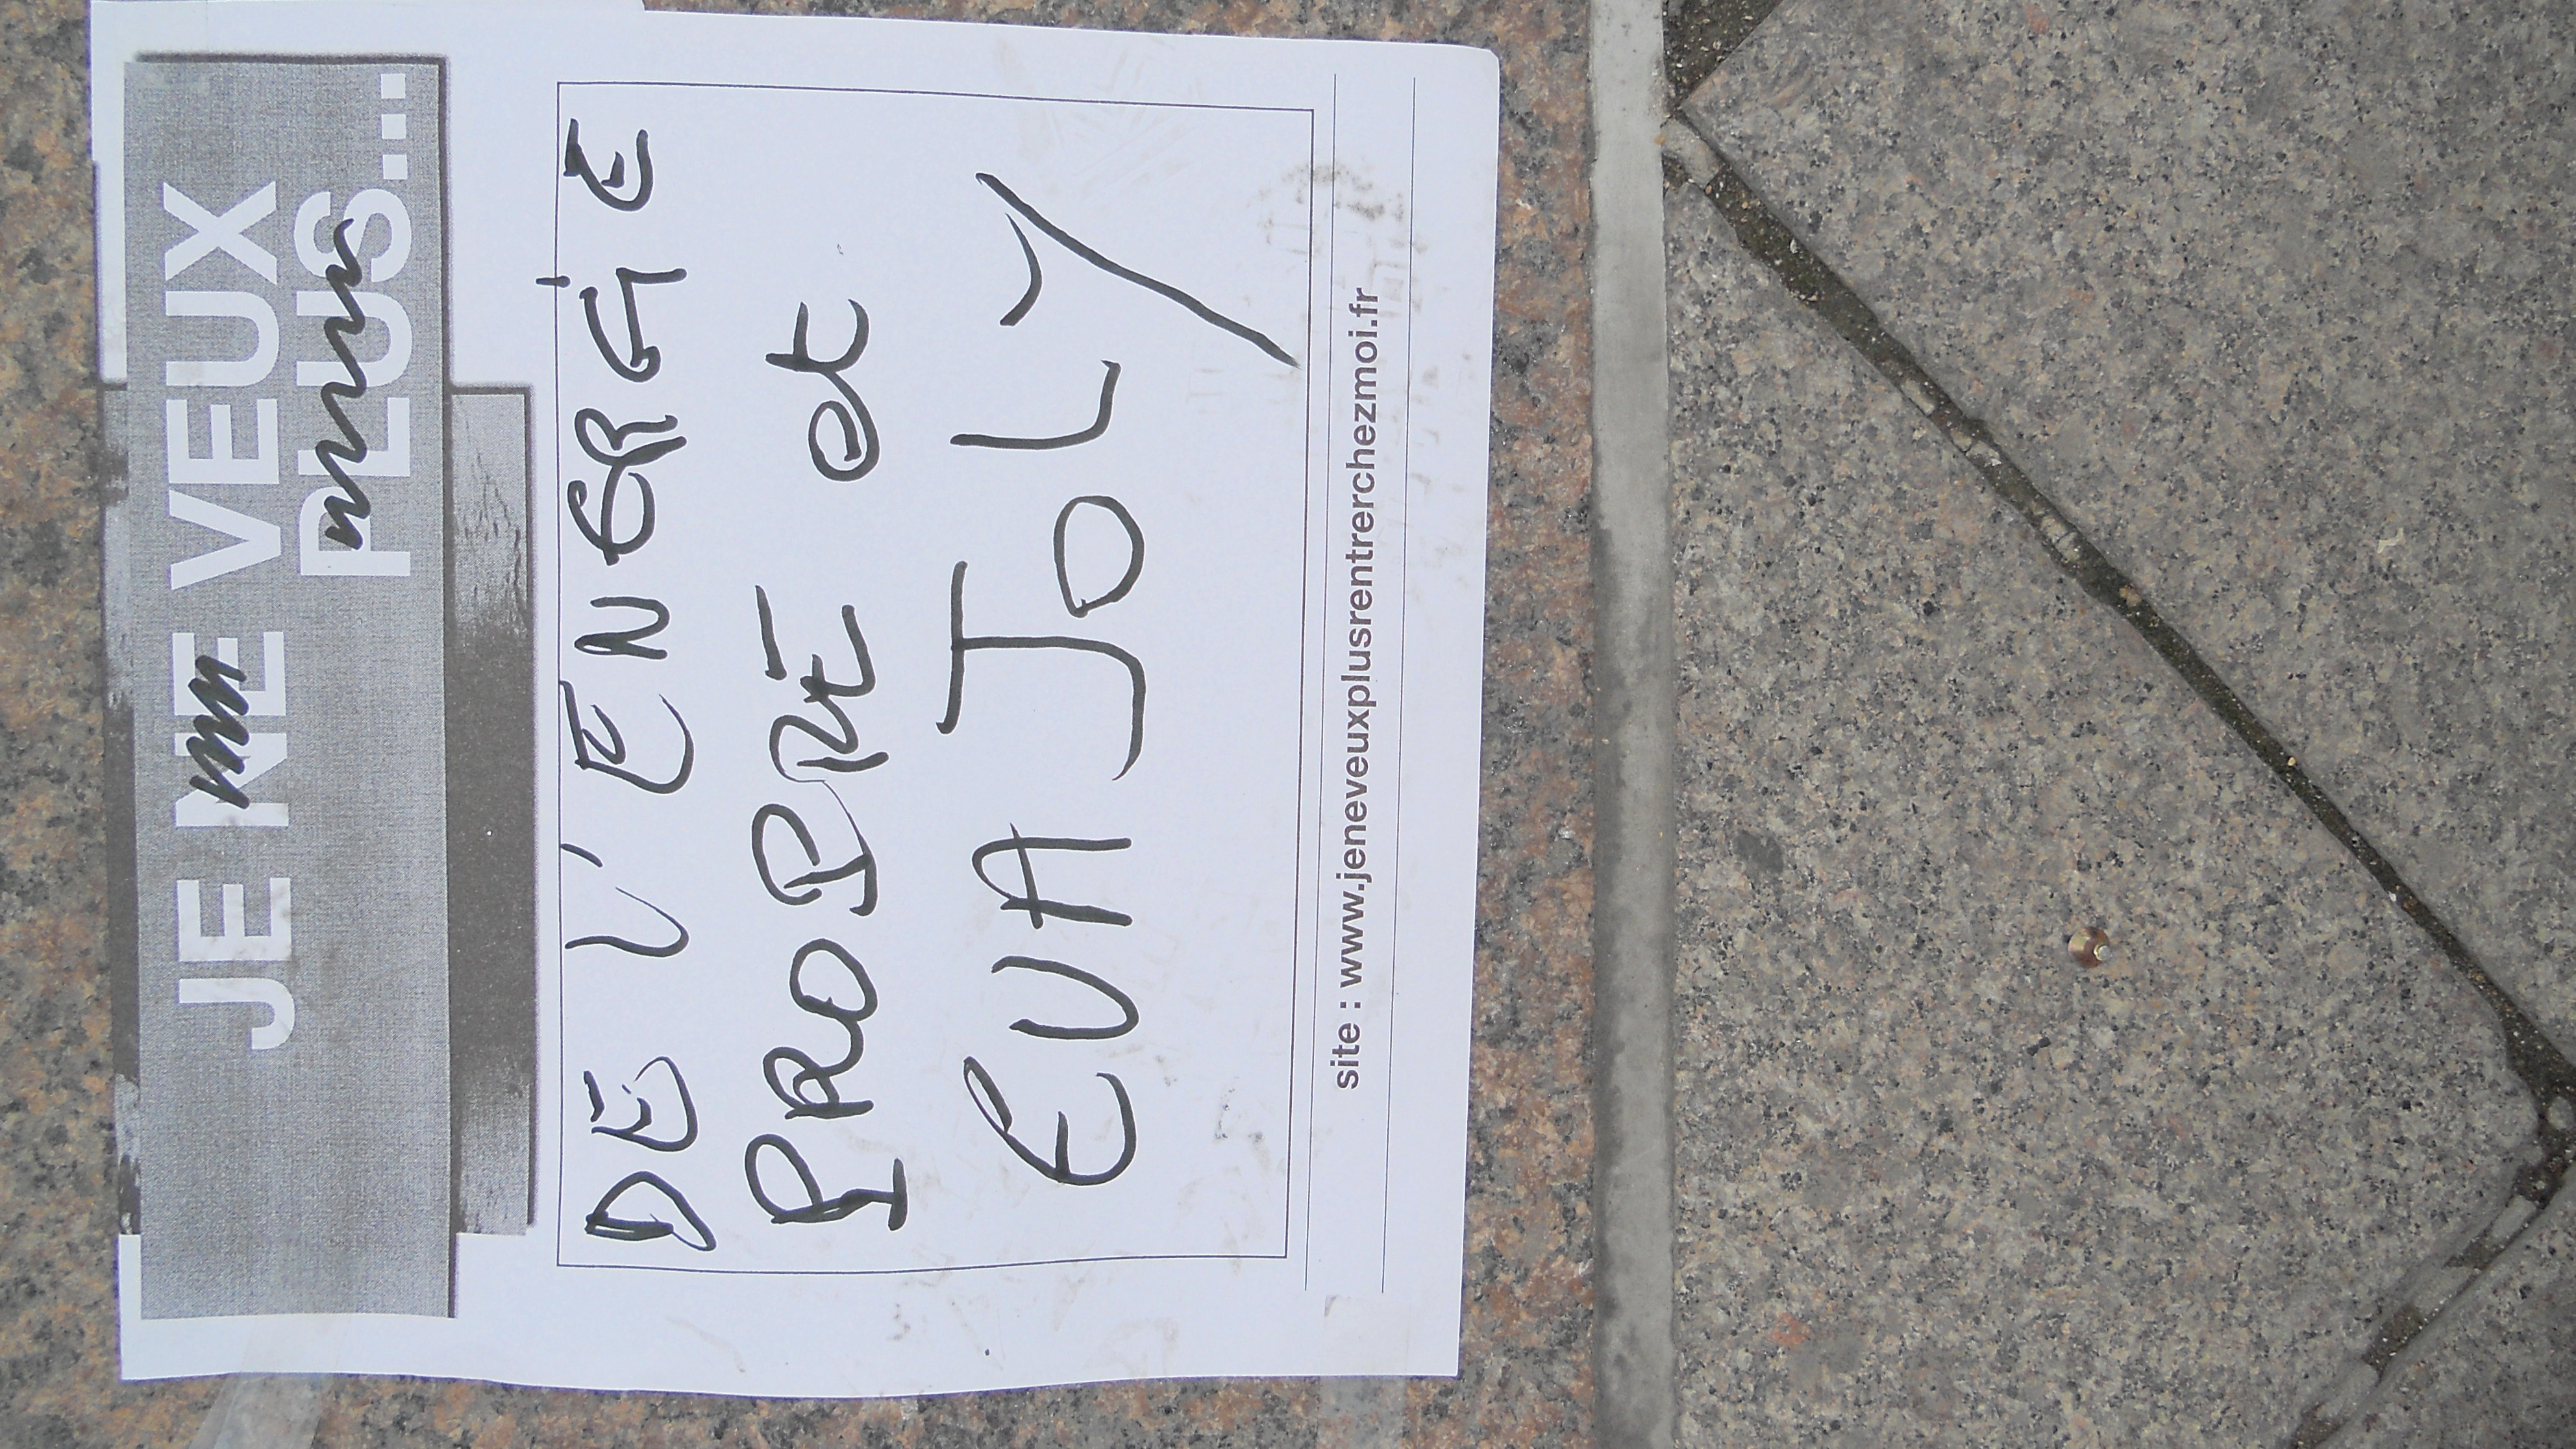 JE NE VEUX
PLUS...
DE L'ENERGIE
PROPRE et
EVA JOLY
site : www.jeneveuxplusrentrerchezmoi.fr